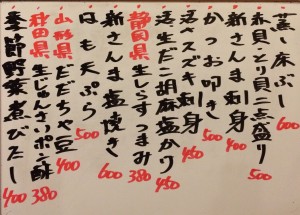 蒸し床ぶし 600
赤貝・とり貝二点盛り 500
新さんま刺身 400
かつお叩き 500
活スズキ刺身 450
活生だこ胡麻塩かり 450
静岡県生しらすつまみ 380
新さんま塩焼き 600
はも天ぷら 500
山形県だだちゃ豆 400
秋田県生じゅんさいポン酢 380
季節野菜煮びたし 400